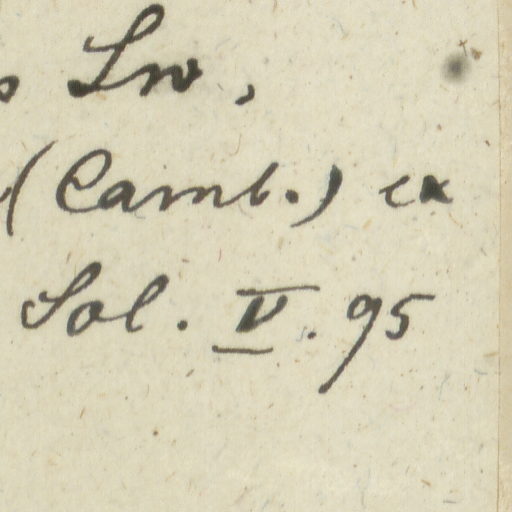 Sw,
(Camb.) ex
Sol. V. 95